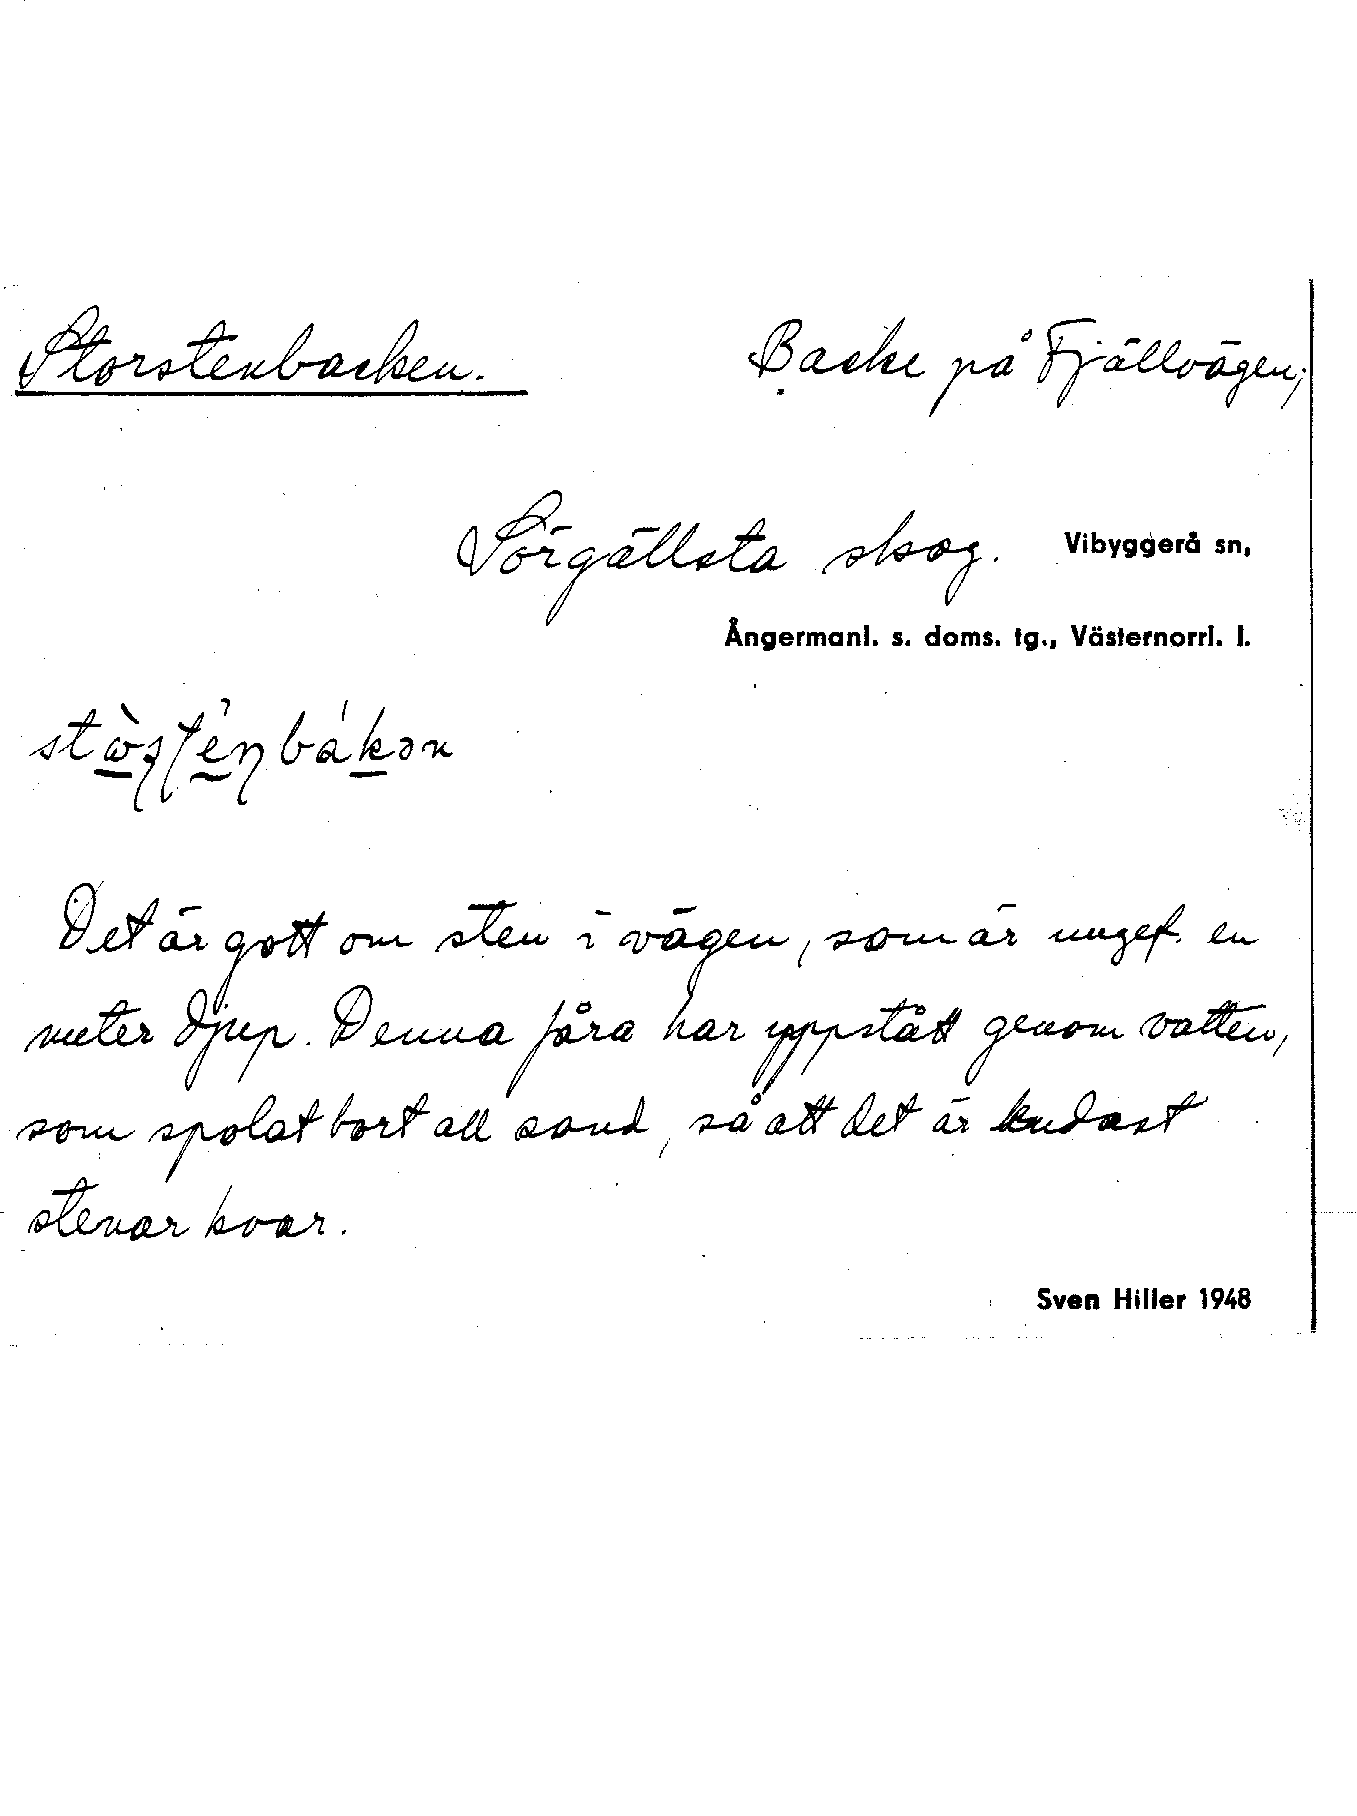 Storstenbacken. Backe på Fjällvägen;
Sörgällsta skog. Vibyggerå sn,
Ångermanl. s. doms. tg., Västernorrl. l.
Det är gott om sten i vägen, som är ungef. en
meter djup. Denna fåra har uppstått genom vatten,
som spolat bort all sand, så att det är endast
stenar kvar.
Sven Hiller 1948